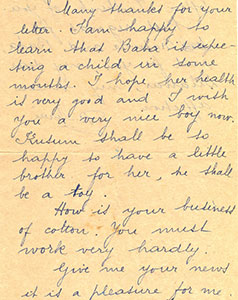 Many thanks for your
letter. I am happy to
learn that Baba is expec-
ting a child in some
months. I hope her health
is very good and I wish
you a very nice boy now.
Kusum shall be so
happy to have a little
brother for her, he shall
be a toy.
How is your business
of cotton. You must
work very hardly.
Give me your news
it is a pleasure for me.